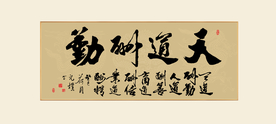 天道酬勤
天道
酬勤
人道
酬善
商道
酬信
業道
酬精